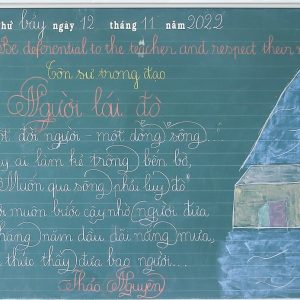 hứ bảy ngày 12 tháng 11 năm 2022
Be deferential to the teacher and respect their
Tôn sư trọng đạo
Người lái đò
ột đời người - một dòng sông...
ấy ai làm kẻ trông bến bờ,
Muốn qua sông phải luỵ đò"
ời muôn bước cậy nhờ người đưa
háng năm dầu dãi nắng mưa,
thức thấy đưa bao người...
Thảo Nguyên